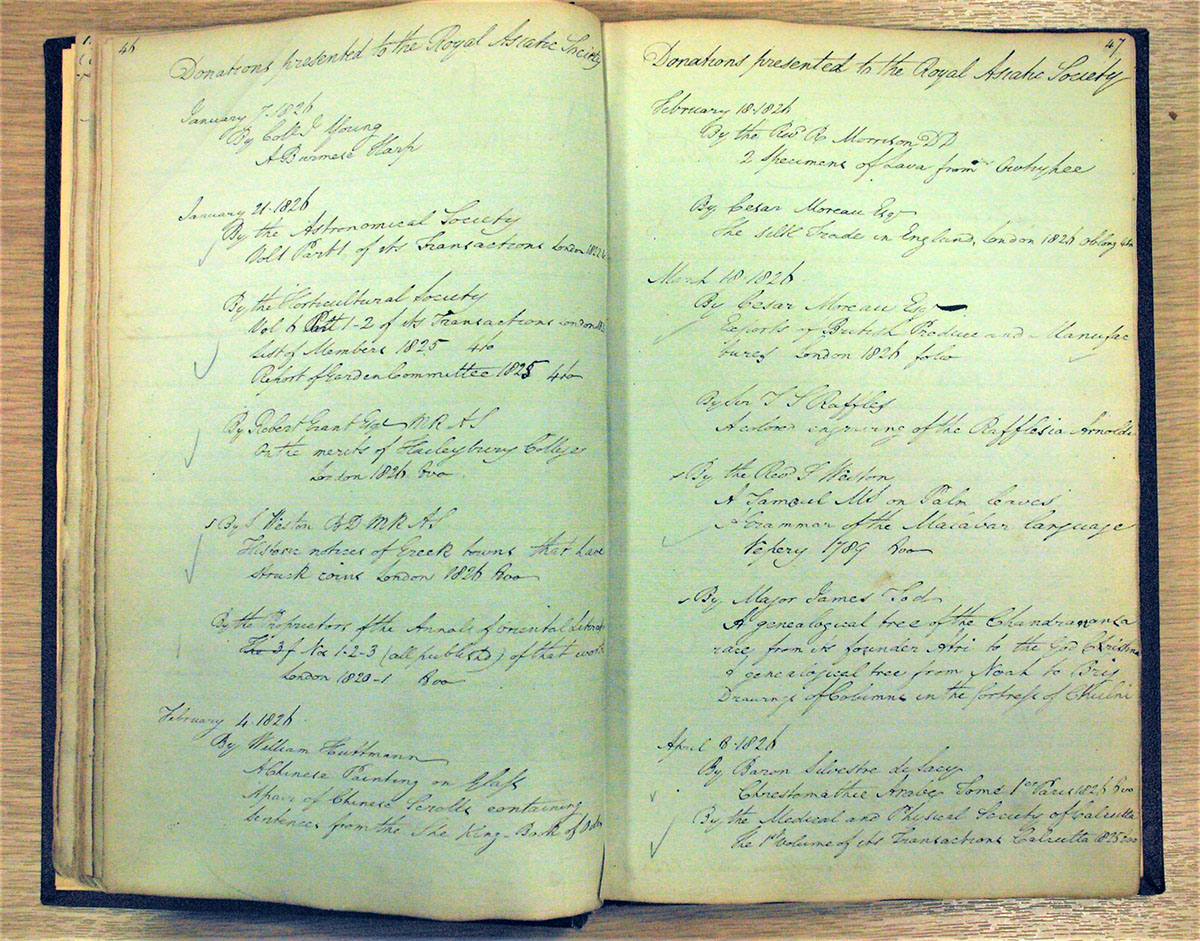 46
Donations presented to the Royal Asiatic Society
January 7. 1826
By Coll. J Young
A Burmese Harp
January 21. 1826
By the Astronomical Society
Vol 2 Part 1 of its Transactions London
By the Horticultural Society
Vol 6 Part 1-2 of its Transactions London
List of Members 1825 4to
Report of Garden Committee 1825 4to
By Robert Grant Esqr M R A S
On the merits of Haileybury College
London 1826 8vo
By S Weston B D M R A S
Historic notices of Greek towns that have
struck coins London 1826 8vo
By the Proprietors of the Annals of oriental literat
of Nos 1-2-3 (all published) of that work
London 1820-1 8vo
February 4. 1826
By William Huttmann
A Chinese Painting on Glass
A pair of Chinese Scrolls containing
Sentences from the She King - Book of Odes
47
Donations presented to the Royal Asiatic Society
February 18. 1826
By the Revd R Morrison DD
2 Specimens of Lava from Owhyhee
By Cesar Moreau Esqr
The Silk Trade in England, London 1826 oblong 4to
March 18. 1826
By Cesar Moreau Esqr
Exports of British Produce and Manufac
tures London 1826 folio
By Sir T S Raffles
A colored engraving of the Rafflesia Arnoldi
By the Revd S Weston
A Tamul MS on Palm leaves
A Grammar of the Malabar language
Vepery 1789 8vo
By Major James Tod
A genealogical tree of the Chandravansa
race from its founder Atri to the God Christna
A genealogical tree from Noah to Brij
Drawings of Columns in the fortress of
April 8. 1826
By Baron Silvestre de Sacy
Chrestomathie Arabe Tome 1er Paris 1826 8vo
By the Medical and Physical Society of Calcutta
the 1st Volume of its Transactions Calcutta 1825 8vo